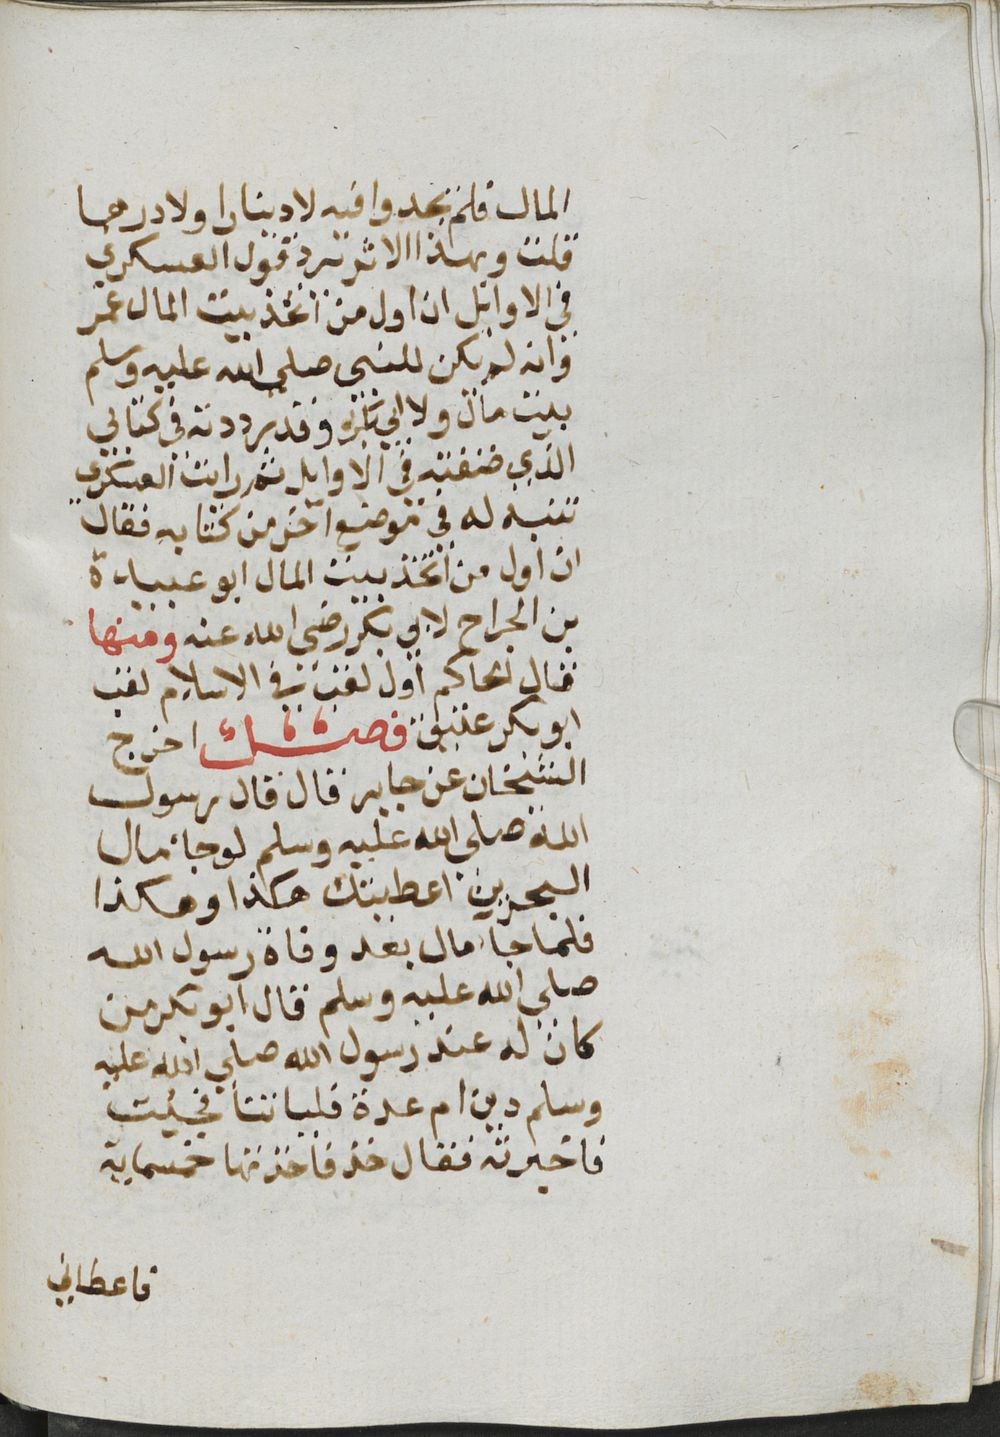 المال فلم يجدوا فيه لا دينارا ولا درهما
قلت وبهذا الاثر يرد قول العسكري
في الاوايل ان اول من اتخذ بيت المال عمر
وانه لم يكن للنبي صلى الله عليه وسلم
بيت مال ولا ابي بكر وقد رددته في كتابي
الذي صنفته في الاوايل ثم رايت العسكري
تنبه له في موضع آخر من كتابه فقال
ان اول من اتخذ بيت المال ابو عبيدة
بن الجراح لابي بكر رضي الله عنه ومنها
قال الحاكم أول لقب في الاسلام لقب
ابو بكر عتيق فصل اخرج
الشيخان عن جابر قال قال رسول
الله صلى الله عليه وسلم لو جاء مال
البحرين اعطيتك هكذا وهكذا
فلما جاء مال بعد وفاة رسول الله
صلى الله عليه وسلم قال ابو بكر من
كان له عند رسول الله صلي الله عليه
وسلم دين ام عدة فلياتنا فجيت
فاخبرته فقال خذ فاخذتها خمسماية
فاعطاني